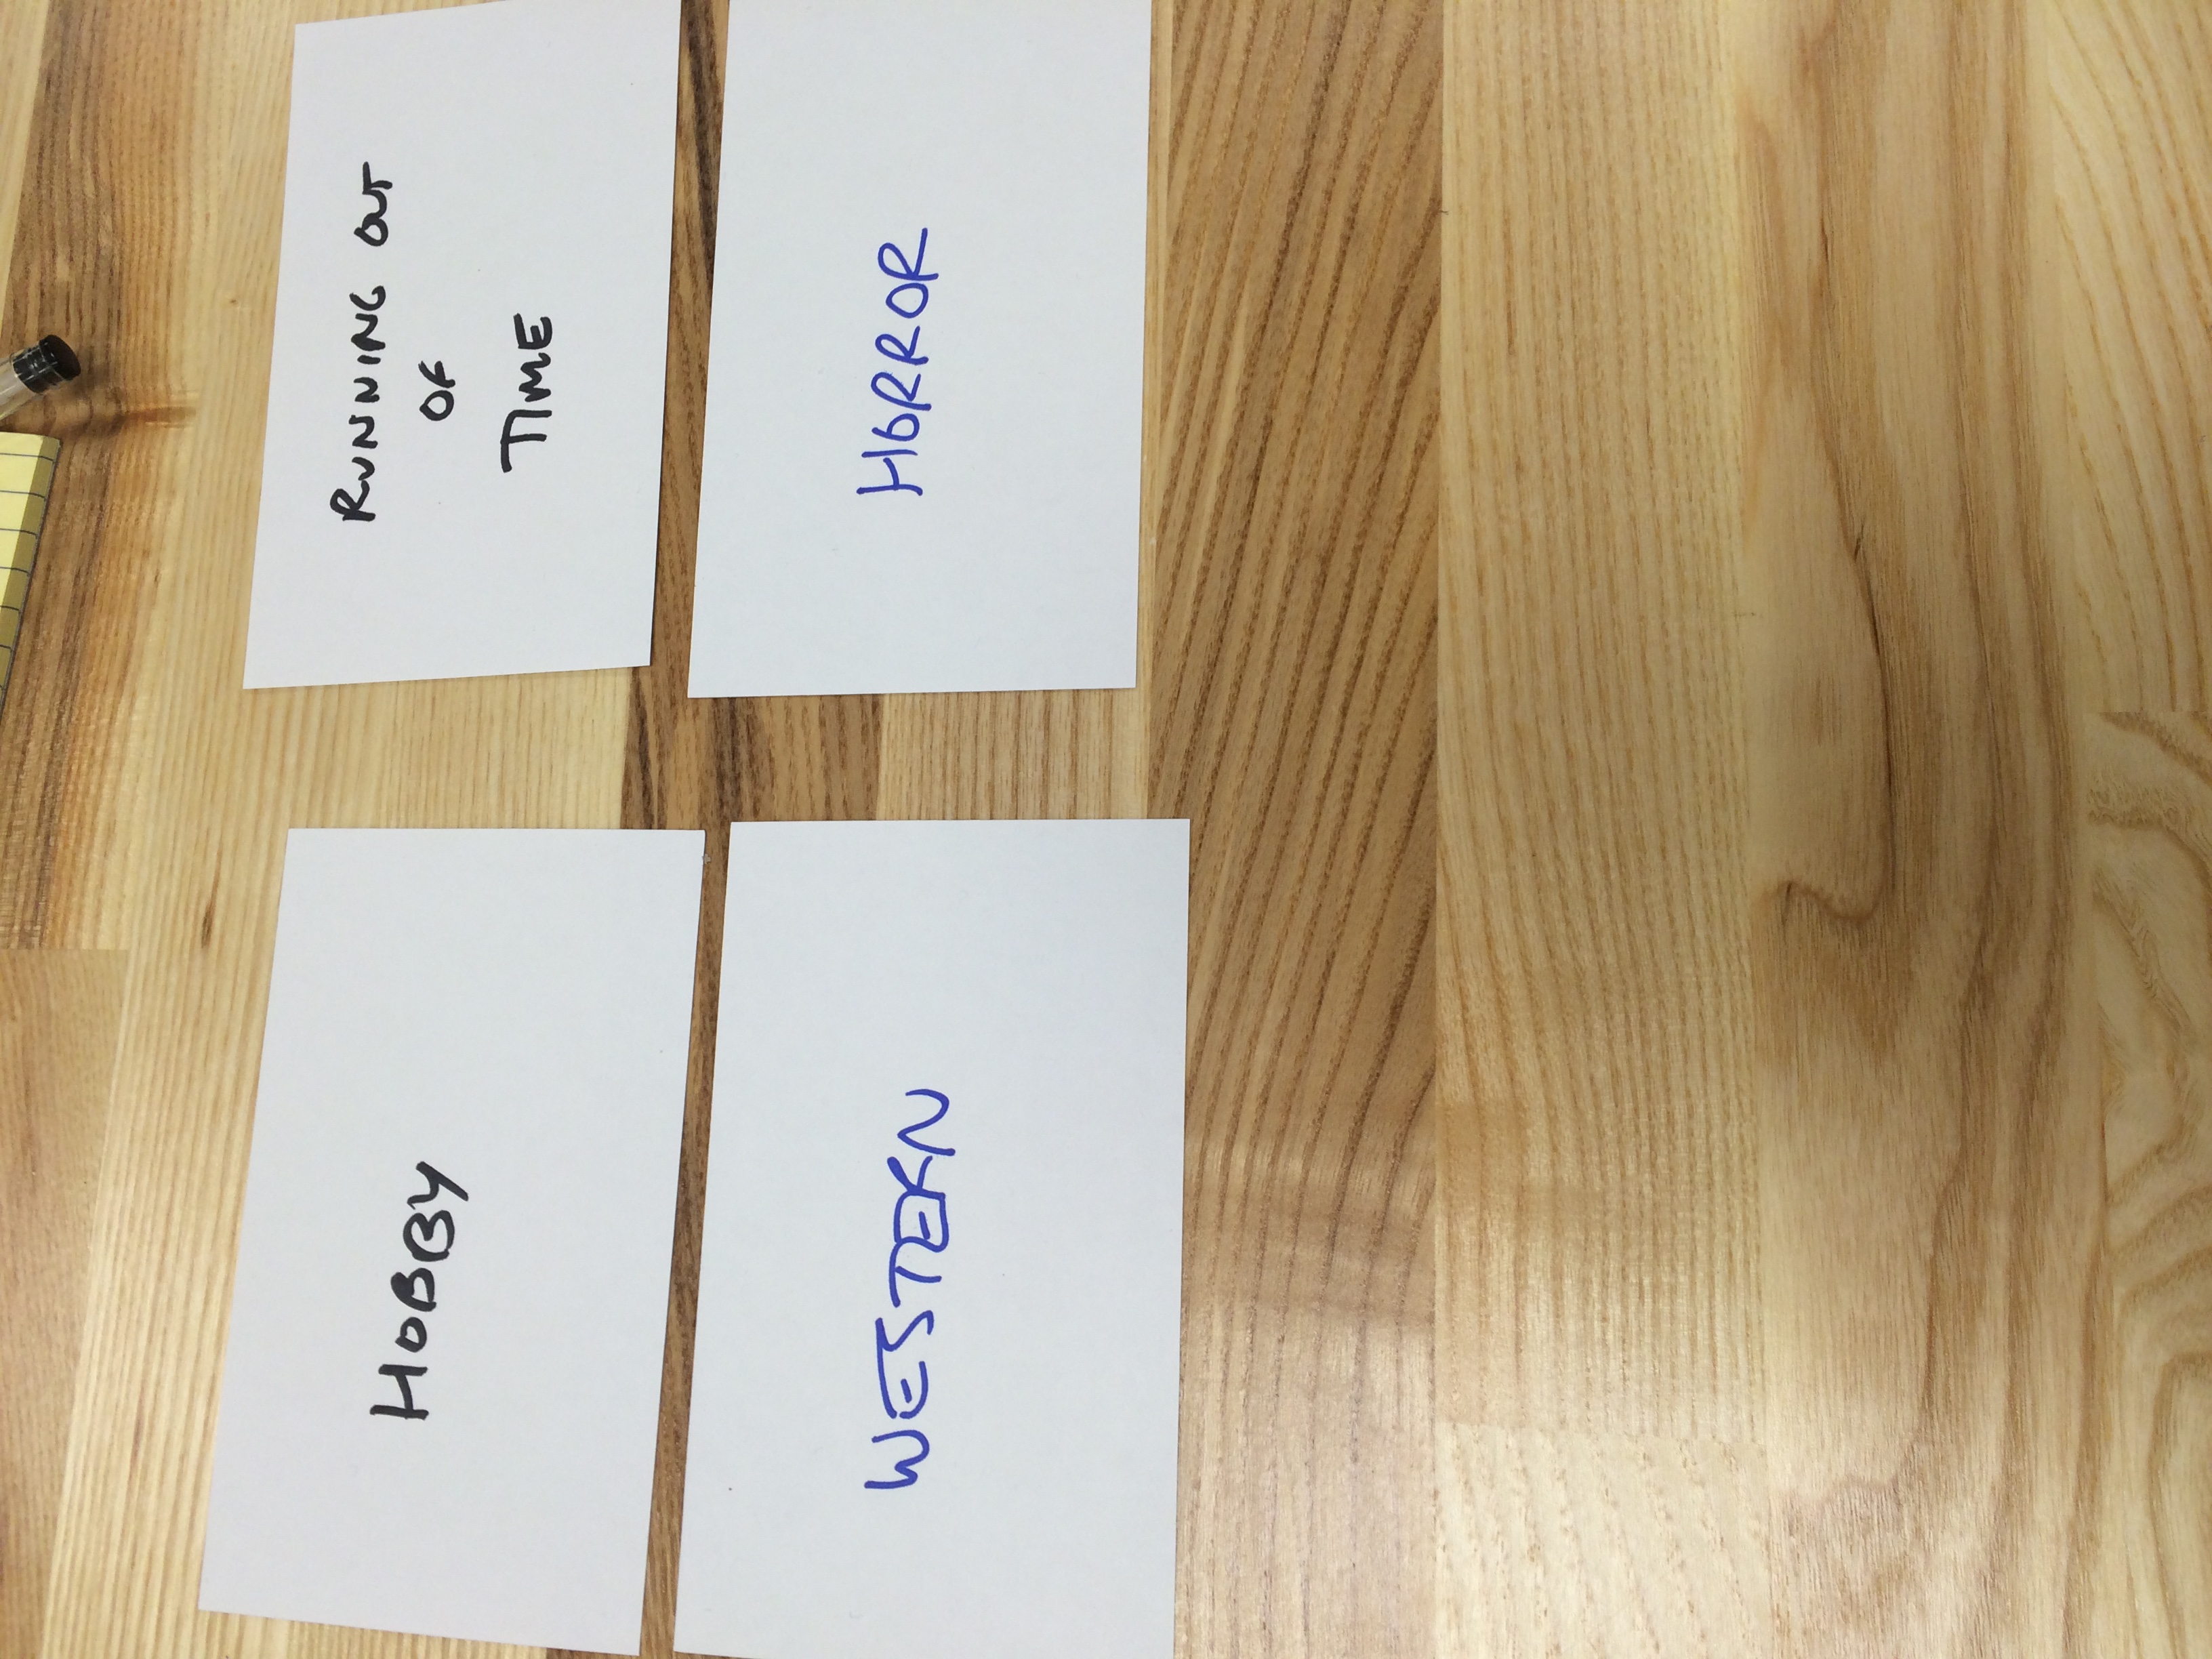 HOBBY
RUNNING OUT
OF
TIME
WESTERN
HORROR